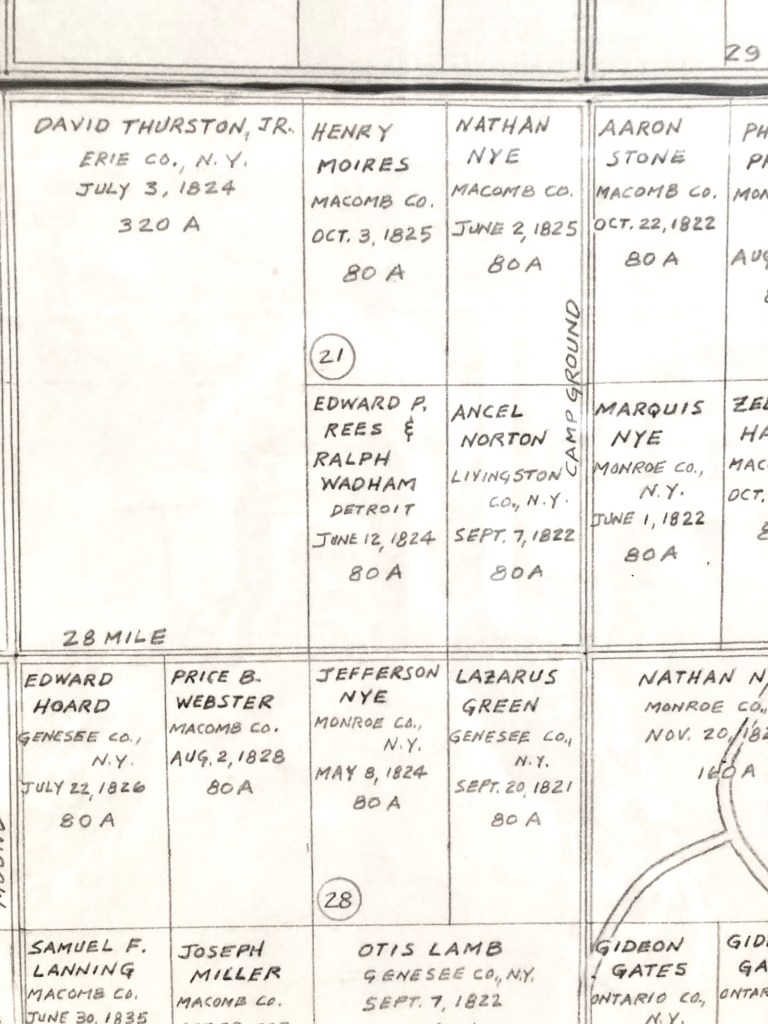 29
DAVID THURSTON, JR.
ERIE CO., N.Y.
JULY 3, 1824
320 A
HENRY
MOIRES
MACOMB CO.
OCT. 3, 1825
80 A
21
NATHAN
NYE
MACOMB CO.
JUNE 2, 1825
80 A
AARON
STONE
MACOMB CO.
OCT. 22, 1822
80 A
EDWARD P.
REES &
RALPH
WADHAM
DETROIT
JUNE 12, 1824
80 A
ANCEL
NORTON
LIVINGSTON
CO., N.Y.
SEPT. 7, 1822
80 A
CAMP GROUND
MARQUIS
NYE
MONROE CO.,
N.Y.
JUNE 1, 1822
80 A
OCT.
28 MILE
EDWARD
HOARD
GENESEE CO.,
N.Y.
JULY 22, 1826
80 A
PRICE B.
WEBSTER
MACOMB CO.
AUG. 2, 1828
80 A
JEFFERSON
NYE
MONROE CO.,
N.Y.
MAY 8, 1824
80 A
28
LAZARUS
GREEN
GENESEE CO.,
N.Y.
SEPT. 20, 1821
80 A
NATHAN N
MONROE CO.,
NOV. 20,
160 A
SAMUEL F.
LANNING
MACOMB CO.
JUNE 30, 1835
JOSEPH
MILLER
MACOMB CO.
OTIS LAMB
GENESEE CO., N.Y.
SEPT. 7, 1822
GIDEON
GATES
ONTARIO CO.,
N.Y.